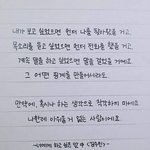 내가 보고 싶었으면 먼저 나를 찾아왔을 거고,
목소리를 듣고 싶었으면 먼저 전화를 했을 거고,
계속 말을 하고 싶었으면 말을 걸었을 거예요
그 어떤 핑계를 만들어서라도.
만약에, 혹시나 하는 생각으로 착각하지 마세요
나한테 아쉬울 거 없는 사람이에요.
너에게 하고 싶은 말 中